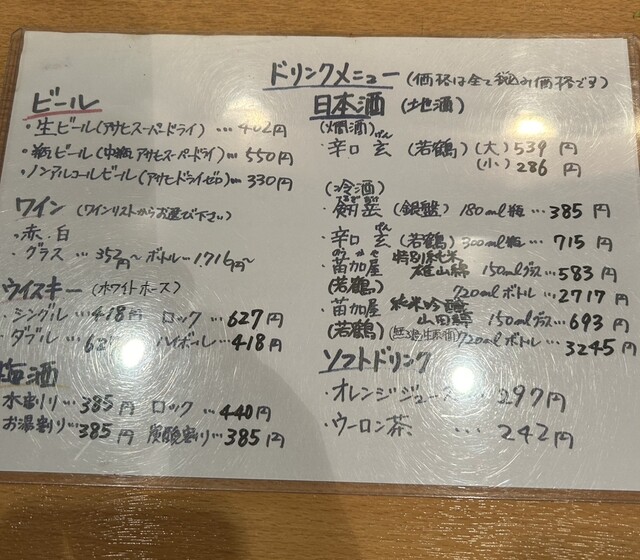 ドリンクメニュー (価格は全て税込み価格です)
ビール
・生ビール(アサヒスーパードライ) … 402円
・瓶ビール(中瓶 アサヒスーパードライ) … 550円
・ノンアルコールビール(アサヒドライゼロ) … 330円
ワイン (ワインリストからお選び下さい)
・赤・白
・グラス … 352円~ ボトル … 1,716円~
ウイスキー (ホワイトホース)
・シングル … 418円 ロック … 627円
・ダブル … 円 ハイボール … 418円
梅酒
水割り … 385円 ロック … 440円
お湯割り … 385円 炭酸割り … 385円
日本酒 (地酒)
(燗酒)
・辛口 玄 (若鶴) (大) 539円
げん
(小) 286円
(冷酒)
(銀盤) 180ml瓶 … 385円
・辛口 玄 (若鶴) 300ml瓶 … 715円
げん
・苗加屋 特別純米 雄山錦 150mlグラス … 583円
のうかや
(若鶴) 720mlボトル … 2717円
・苗加屋 純米吟醸 山田錦 150mlグラス … 693円
(若鶴) 720mlボトル … 3245円
ソフトドリンク
・オレンジジュース … 297円
・ウーロン茶 … 242円